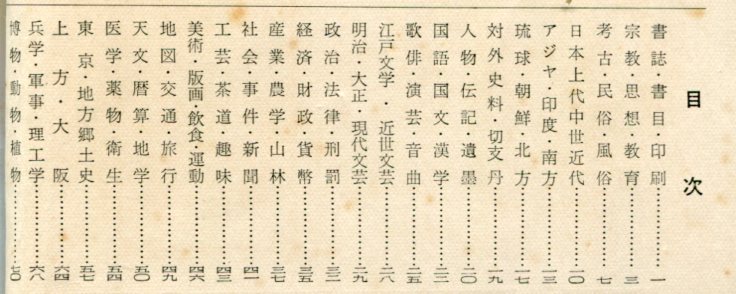 目次
書誌・書目・印刷………一
宗教・思想・教育………三
考古・民俗風俗………七
日本上代中世近代………一〇
アジヤ・印度・南方………一三
琉球・朝鮮・北方………一七
対外史料・切支丹………一九
人物・伝記・遺墨………二〇
国語・国文・漢学………二三
歌俳・演芸・音曲………二五
江戸文学・近世文芸………二八
明治・大正・現代文芸………二九
政治・法律・刑罰………三二
経済・財政・貨幣………三五
産業・農学・山林………三七
社会・事件・新聞………四一
工芸・茶道・趣味………四三
美術・版画・飲食・運動………四六
地図・交通・旅行………四九
天文・暦算・地学………五〇
医学・薬物・衛生………五四
東京・地方郷土史………五七
上方・大阪………六四
兵学・軍事・理工学………六八
博物・動物・植物………七〇